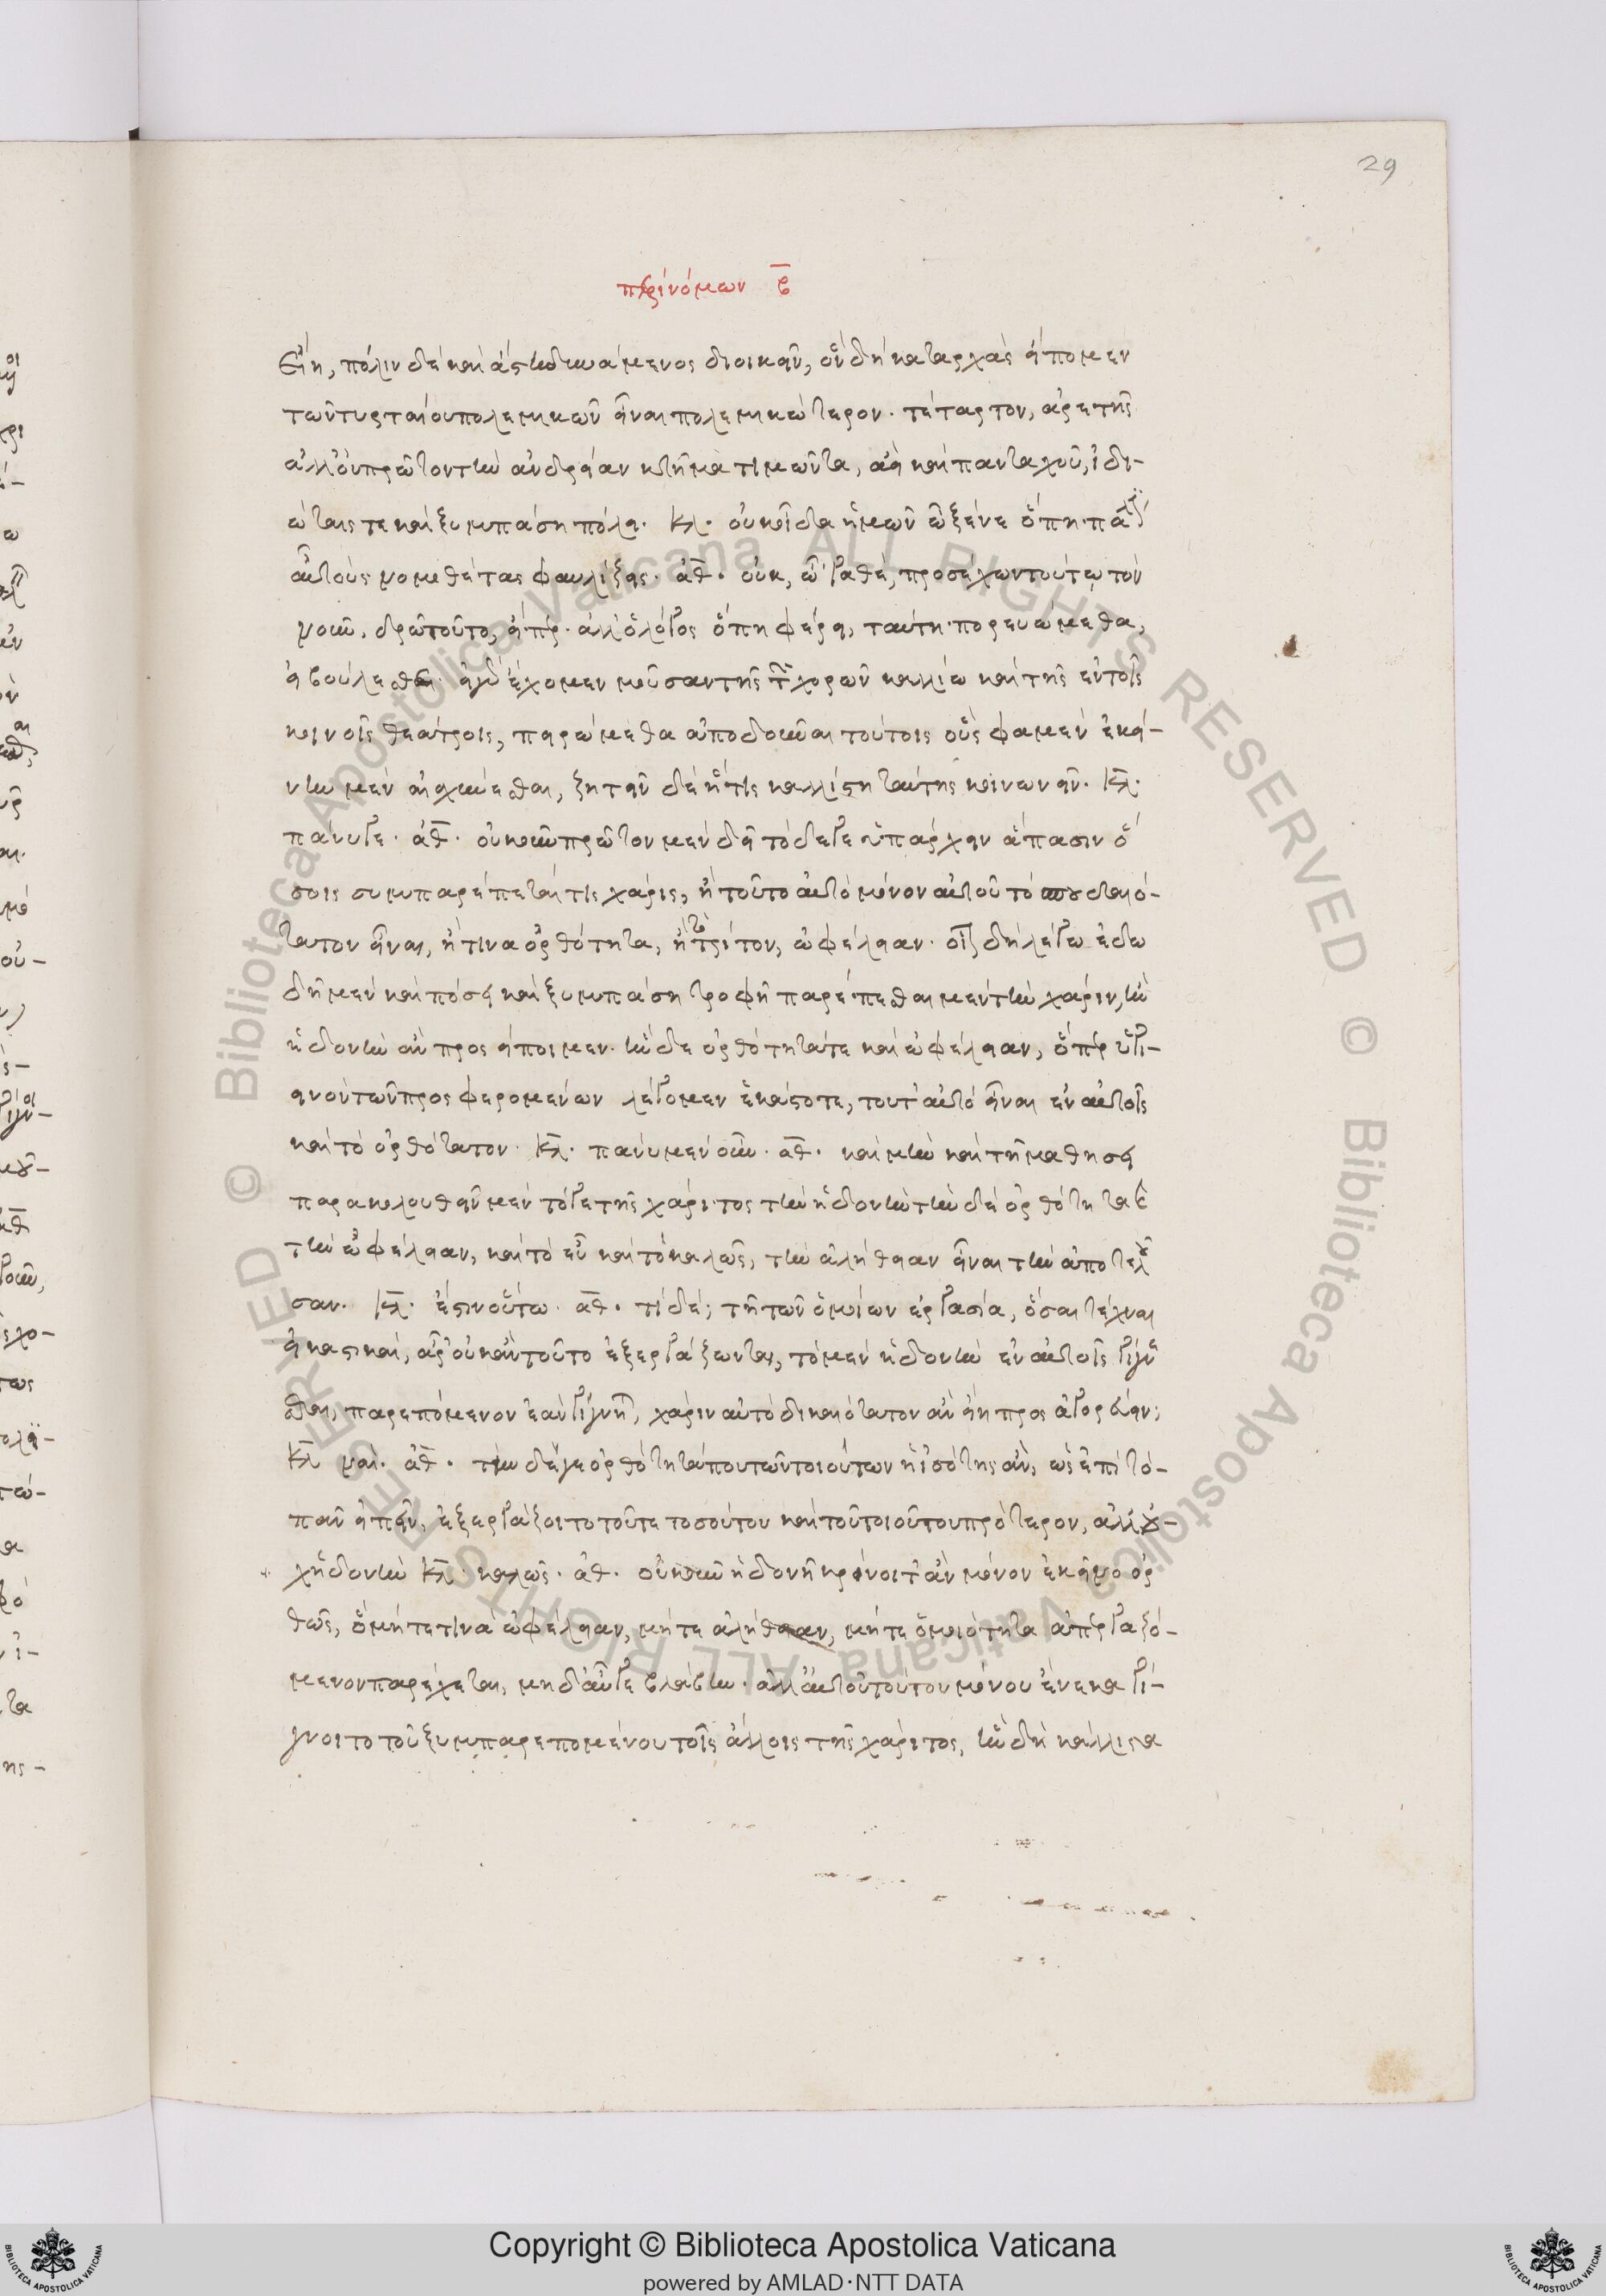 29
περὶ νόμων β̄
Εἴη, πόλιν δὲ καὶ ἄστυ δυνάμενος διοικεῖν, ὃν δὴ κατἀρχὰς εἴπομεν
τῶν τυρταίου πολεμικῶν εἶναι πολεμικώτερον. τέταρτον, ἀρετῆς
ἀλλ' οὐ πρῶτον τὴν ἀνδρείαν κτῆμα τιμῶντα, ἀεὶ καὶ πανταχοῦ, ἰδι-
ώταις τε καὶ ξυμπάση πόλει. κλ. οὐκ οἶδα ἡμῶν ὦ ξένε ὅπη πάλιν
αὖ τοὺς νομοθέτας φαυλίζεις. ἀθ. οὐκ, ὦ 'γαθὲ, προσέχων τούτῳ τὸν
νοῦν, δρῶ τοῦτο, εἴπερ. ἀλλ' ὁ λόγος ὅπη φέρει, ταύτη πορευώμεθα,
εἰ βούλεσθε. εἰ γὰρ ἔχομεν μοῦσαν τῆς τῶν χορῶν καλλίω καὶ τῆς ἐν τοῖς
κοινοῖς θεάτροις, πειρώμεθα ἀποδοῦναι τούτοις οὕς φαμεν ἐκεί-
νην μὲν αἰσχύνεσθαι, ζητεῖν δὲ ἥτις καλλίστη ταύτης κοινωνεῖν. κλ.
πάνυ γε. ἀθ. οὐκοῦν πρῶτον μὲν δεῖ τόδε γε ὑπάρχειν ἅπασιν ὅ
σοις συμπαρέπεταί τις χάρις, ἢ τοῦτο αὐτὸ μόνον αὐτοῦ τὸ σπουδαιό-
τατον εἶναι, ἤ τινα ὀρθότητα, ἢ τὸ τρίτον, ὠφέλειαν. οἷον δὴ λέγω ἐδω
δῆ μὲν καὶ πόσει καὶ ξυμπάση τροφῆ παρέπεσθαι μὲν τὴν χάριν, ἣν
ἡδονὴν ἂν προσείποιμεν. ἣν δὲ ὀρθότητά τε καὶ ὠφέλειαν, ὅπερ ὑγι-
εινὸν τῶν προσφερομένων λέγομεν ἑκάστοτε, τοῦτ' αὐτὸ εἶναι ἐν αὐτοῖς
καὶ τὸ ὀρθότατον. κλ. πάνυ μὲν οὖν. ἀθ. καὶ μὴν καὶ τῆ μαθήσει
παρακολουθεῖν μὲν τό γε τῆς χάριτος τὴν ἡδονὴν τὴν δὲ ὀρθότητα καὶ
τὴν ὠφέλειαν, καὶ τὸ εὖ καὶ τὸ καλῶς, τὴν ἀλήθειαν εἶναι τὴν ἀποτελοῦ
σαν. κλ. ἔστιν οὕτω. ἀθ. τί δέ; τῆ τῶν ὁμοίων ἐργασία, ὅσαι τέχναι
εἰκαστικαὶ, ἆρ' οὐκ ἂν τοῦτο ἐξεργάζωνται, τὸ μὲν ἡδονὴν ἐν αὐτοῖς γίγνε
σθαι, παρεπόμενον ἐὰν γίγνηται, χάριν αὐτὸ δικαιότατον ἂν εἴη προσαγορεύειν;
κλ ναὶ. ἀθ. τὴν δέ γε ὀρθότητά που τῶν τοιούτων ἡ ἰσότης ἂν, ὡς ἐπὶ τὸ-
πᾶν εἰπεῖν, ἐξεργάζοιτο τοῦ τε τοσούτου καὶ τοῦ τοιούτου πρότερον, ἀλλ' οὐ-
χ ἡδονὴν κλ. καλῶς. ἀθ. οὐκοῦν ἡδονῆ κρίνοιτ' ἂν μόνον ἐκεῖνο ὀρ
θῶς, ὃ μήτε τινὰ ὠφέλειαν, μήτε ἀλήθειαν, μήτε ὁμοιότητα ἀπεργαζό-
μενον παρέχεται, μηδ' αὖ γε βλάβην. ἀλλ' αὐτοῦ τούτου μόνου ἕνεκα γί-
γνοιτο τοῦ ξυμπαρεπομένου τοῖς ἄλλοις τῆς χάριτος, ἣν δὴ κάλλιστα
Copyright © Biblioteca Apostolica Vaticana
powered by AMLAD·NTT DATA